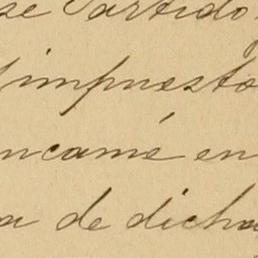 se Partido.
impuesto
ncamé en
a de dicha